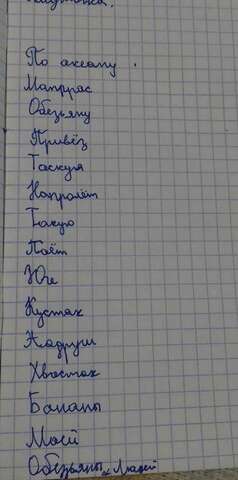 По океану.
Матррас
Обезьяну
Привёз
Таскуя
Напролёт
Такую
Поёт
Юге
Кустах
Хвостах
Бананы
Моей
Обезьяны